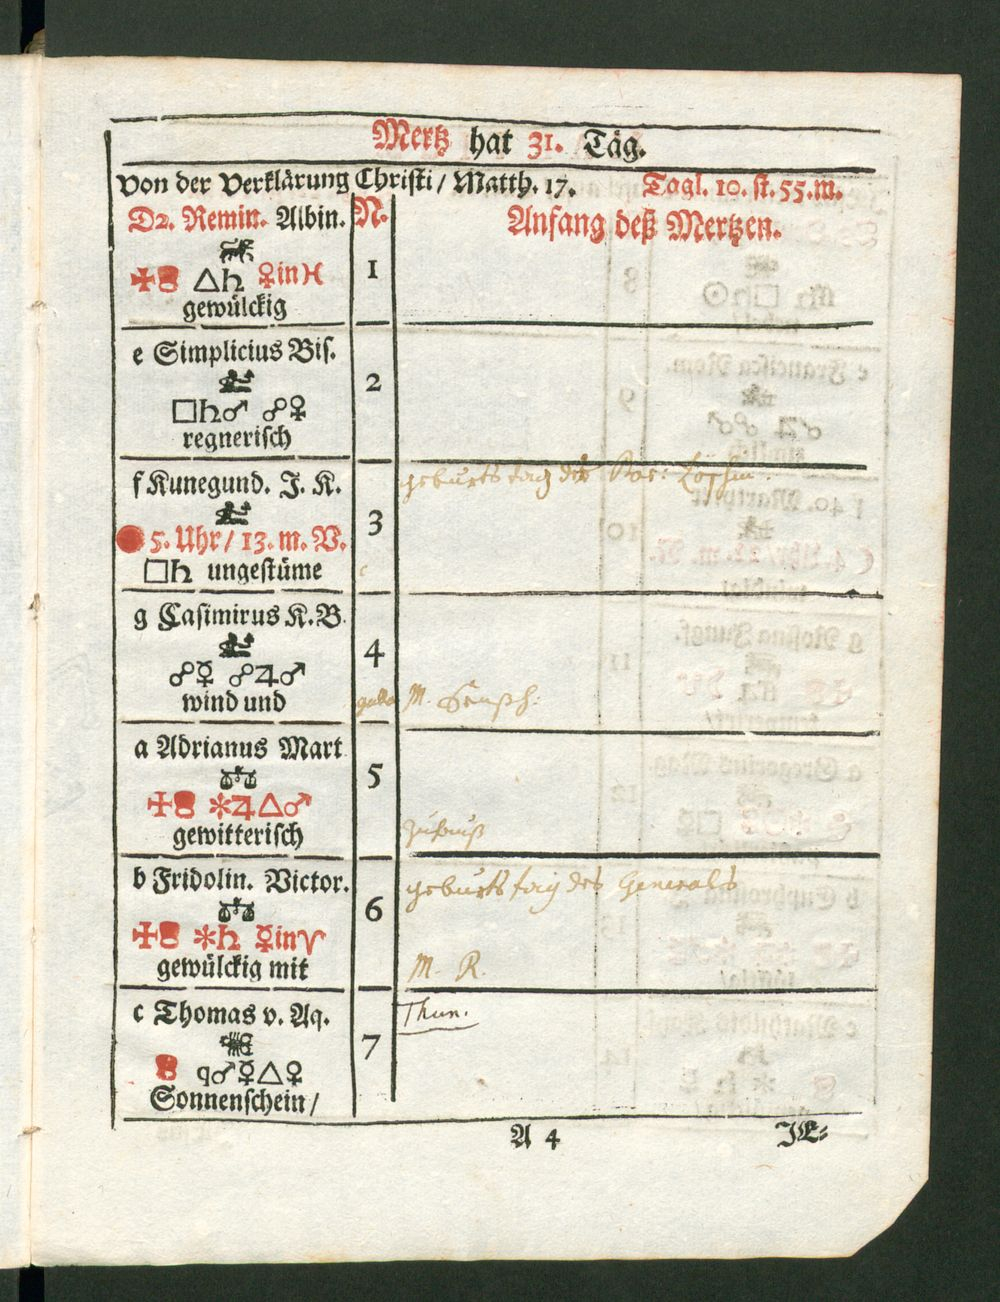 Mertz hat 31. Täg.
Von der Verklärung Christi / Matth. 17. Tagl. 10. st. 55. m.
D2. Remin. Albin. N. Anfang deß Mertzen.
△♄ ♀in♓ 1
gewülckig
e Simplicius Bis.
2
□♄♂ ☍♀
regnerisch
f Kunegund. J. K. geburts tag der
3
5. Uhr / 13. m. V.
□♄ ungestüme
g Casimirus K. B.
4
☍☿ ☍♃♂
wind und
M.
a Adrianus Mart
5
✠ ✱♃△♂
gewitterisch
zuhauß
b Fridolin. Victor. geburts tag des Generals
6
✠ ✱♄ ☿in♈
gewülckig mit M. R.
c Thomas v. Aq. Thun.
7
q♂☿△♀
Sonnenschein /
A 4 JE⸗